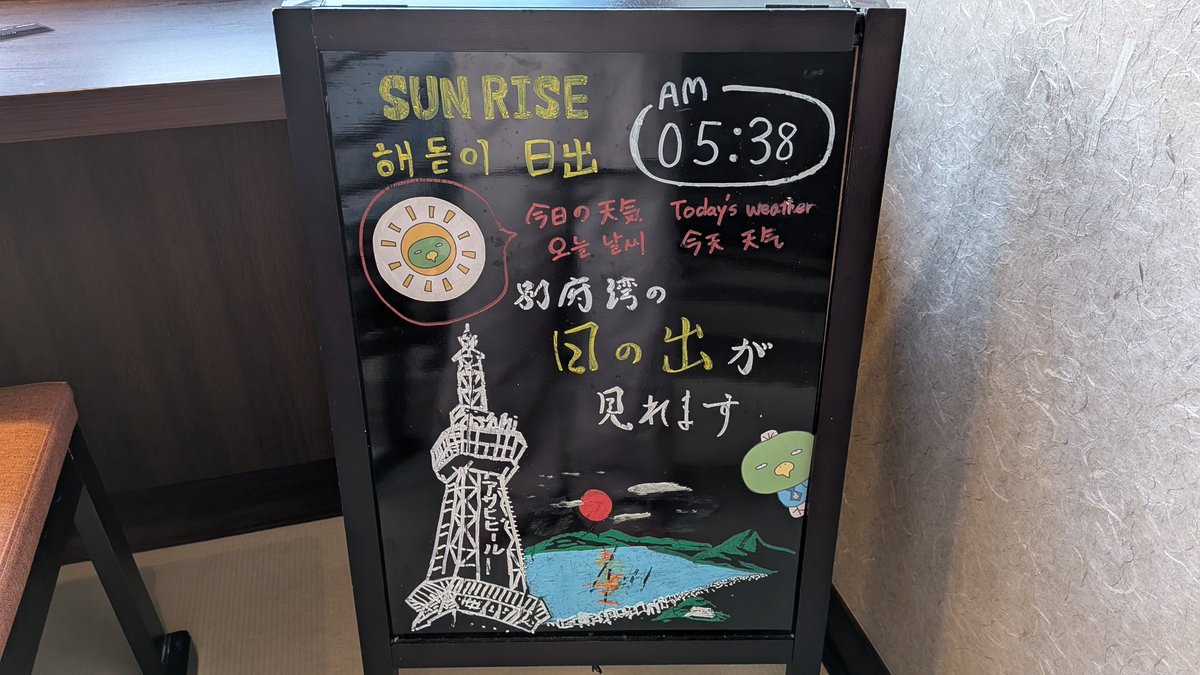 SUN RISE
AM
05:38
해돋이 日出
今日の天気 Today's weather
오늘 날씨 今天 天气
別府湾の
日の出が
見れます
アサヒビール